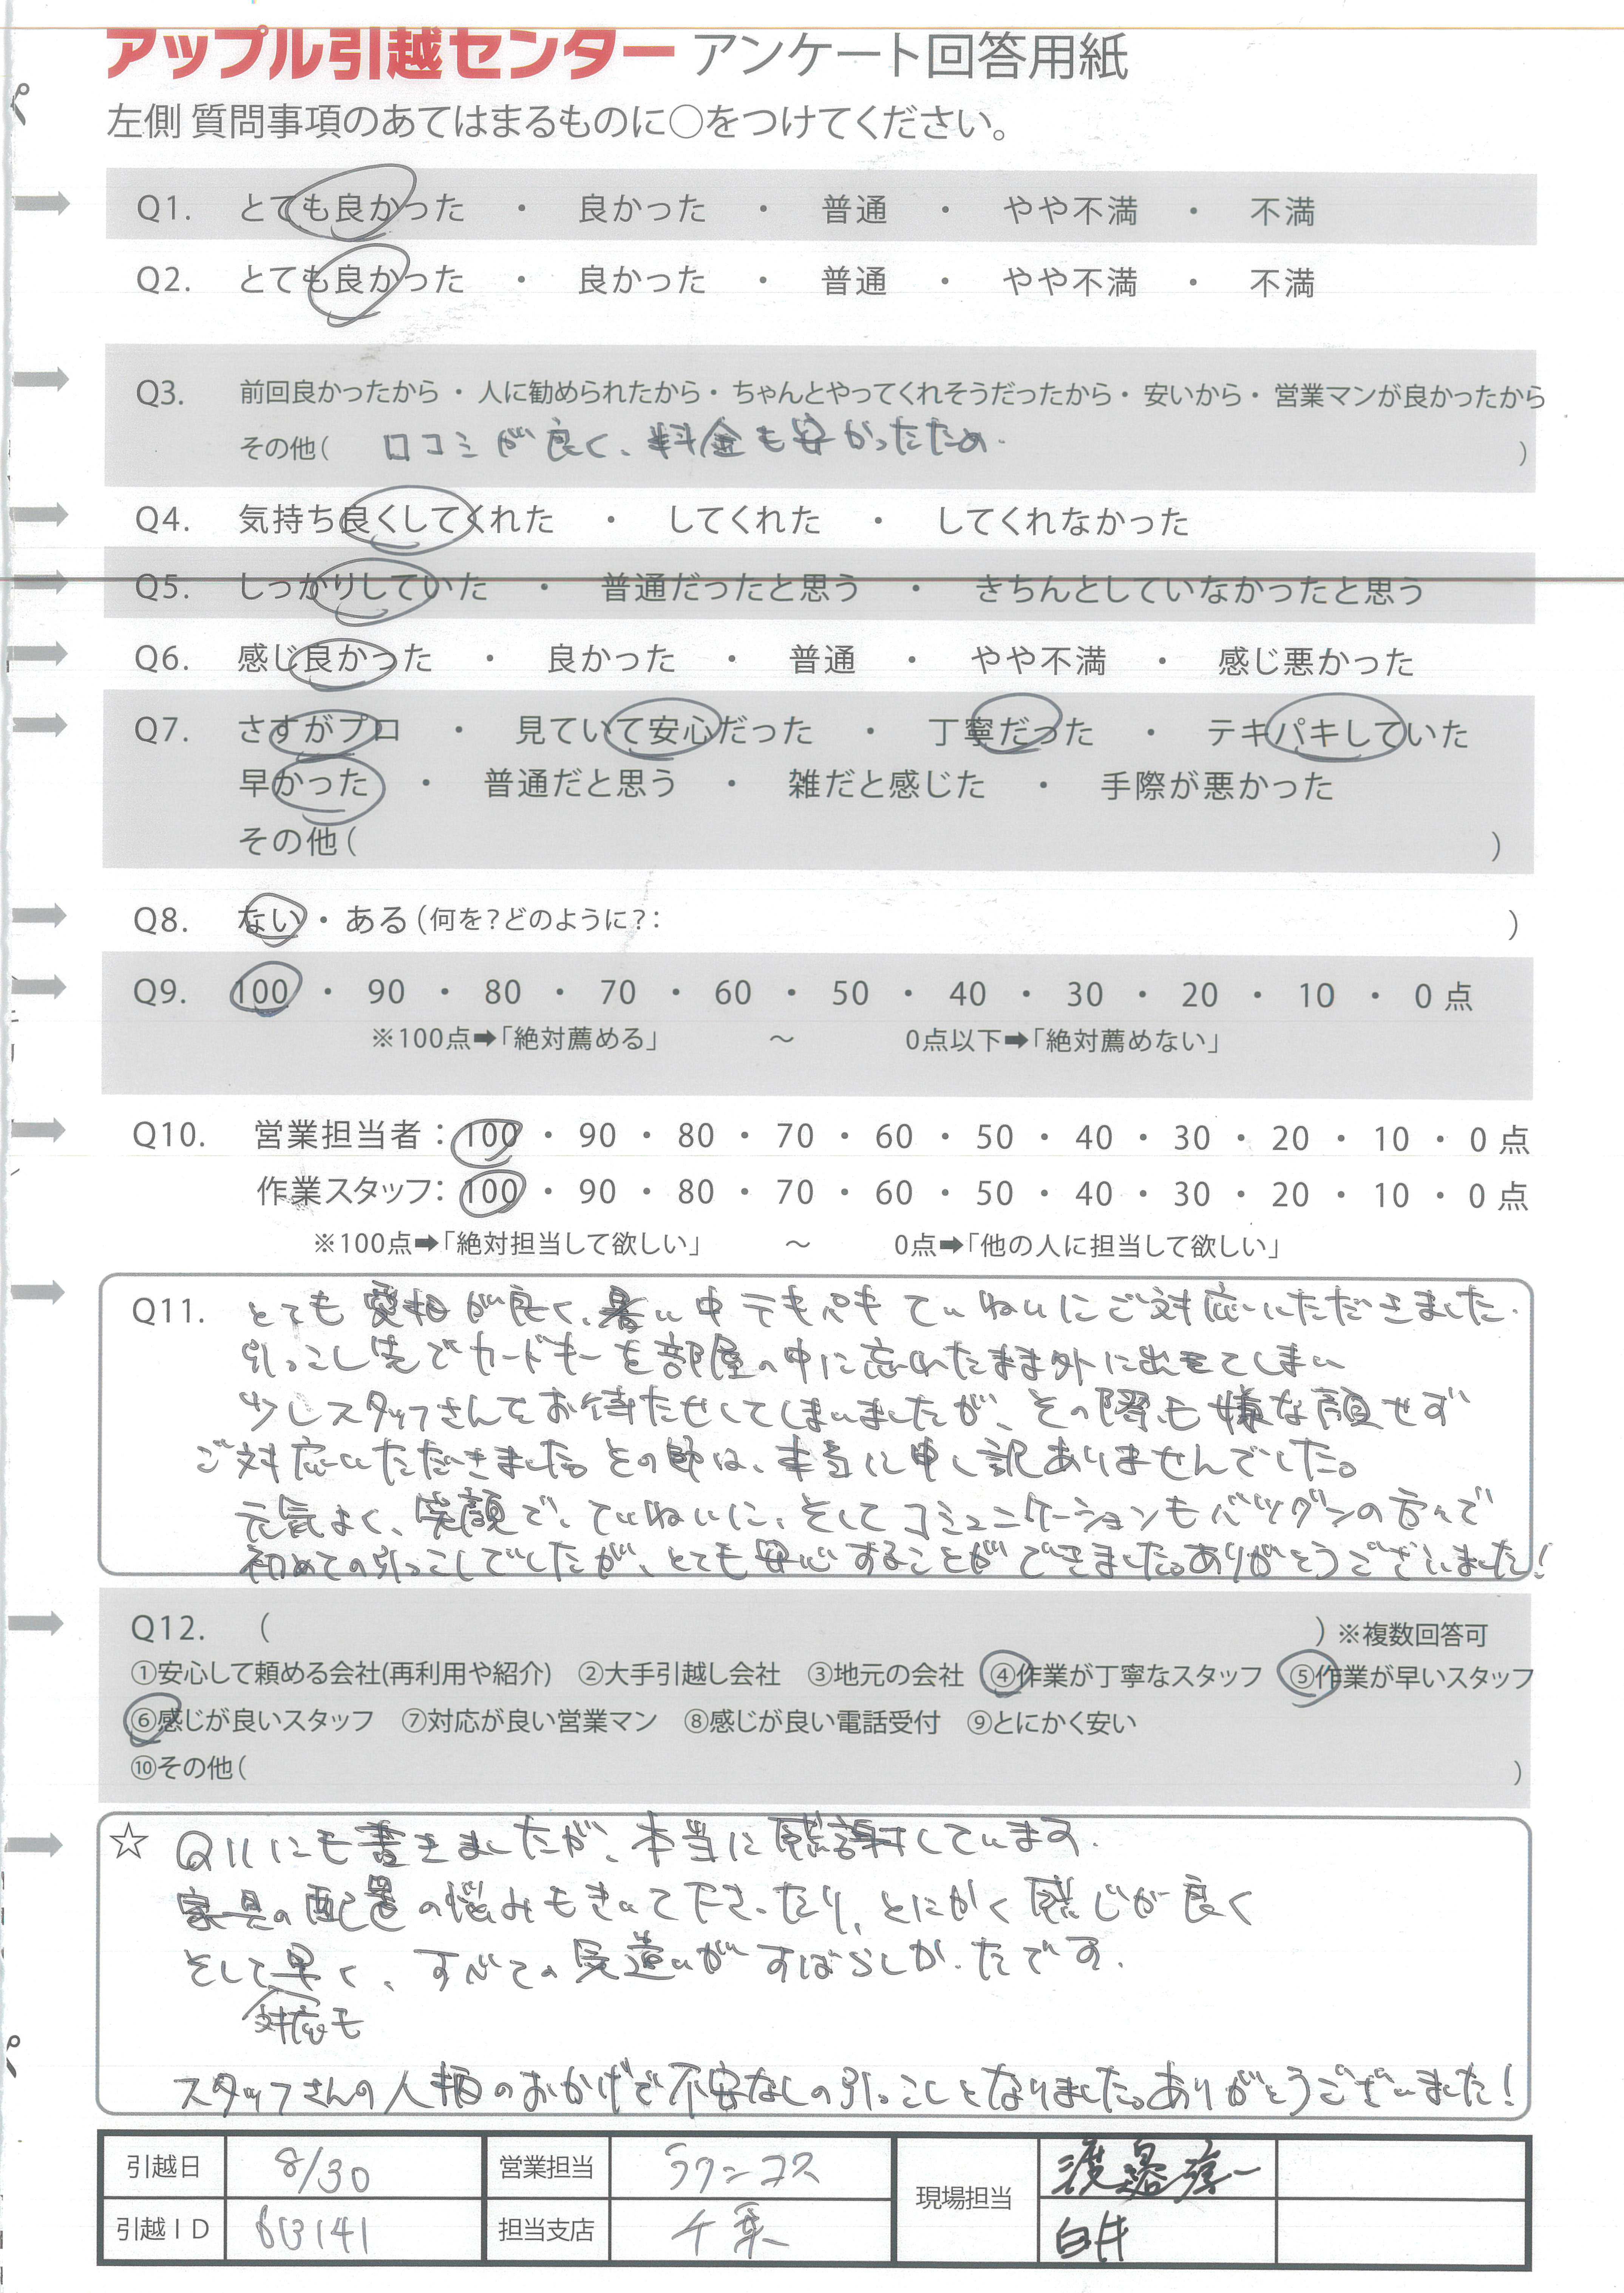 アップル引越センター アンケート回答用紙
左側 質問事項のあてはまるものに○をつけてください。
Q1. とても良かった ・ 良かった ・ 普通 ・ やや不満 ・ 不満
Q2. とても良かった ・ 良かった ・ 普通 ・ やや不満 ・ 不満
Q3. 前回良かったから ・ 人に勧められたから ・ ちゃんとやってくれそうだったから ・ 安いから ・ 営業マンが良かったから
その他( 口コミが良く、料金も安かったため. )
Q4. 気持ち良くしてくれた ・ してくれた ・ してくれなかった
Q5. しっかりしていた ・ 普通だったと思う ・ きちんとしていなかったと思う
Q6. 感じ良かった ・ 良かった ・ 普通 ・ やや不満 ・ 感じ悪かった
Q7. さすがプロ ・ 見ていて安心だった ・ 丁寧だった ・ テキパキしていた
早かった ・ 普通だと思う ・ 雑だと感じた ・ 手際が悪かった
その他( )
Q8. ない ・ ある (何を?どのように?: )
Q9. 100 ・ 90 ・ 80 ・ 70 ・ 60 ・ 50 ・ 40 ・ 30 ・ 20 ・ 10 ・ 0 点
※100点➡「絶対薦める」 ～ 0点以下➡「絶対薦めない」
Q10. 営業担当者: 100 ・ 90 ・ 80 ・ 70 ・ 60 ・ 50 ・ 40 ・ 30 ・ 20 ・ 10 ・ 0 点
作業スタッフ: 100 ・ 90 ・ 80 ・ 70 ・ 60 ・ 50 ・ 40 ・ 30 ・ 20 ・ 10 ・ 0 点
※100点➡「絶対担当して欲しい」 ～ 0点➡「他の人に担当して欲しい」
Q11. とても愛想が良く、暑い中テキパキていねいにご対応いただきました.
引っこし先でカードキーを部屋の中に忘れたまま外に出てしまい
少しスタッフさんをお待たせしてしまいましたが、その際も嫌な顔せず
ご対応いただきました。その節は、本当に申し訳ありませんでした。
元気よく、笑顔で、ていねいに、そしてコミュニケーションもバツグンの方々で
初めての引っこしでしたが、とても安心することができました。ありがとうございました!
Q12. ( ) ※複数回答可
①安心して頼める会社(再利用や紹介) ②大手引越し会社 ③地元の会社 ④作業が丁寧なスタッフ ⑤作業が早いスタッフ
⑥感じが良いスタッフ ⑦対応が良い営業マン ⑧感じが良い電話受付 ⑨とにかく安い
⑩その他( )
☆ Q11にも書きましたが、本当に感謝しています.
家具の配置の悩みもきいて下さったり、とにかく感じが良く
そして早く、すべての気遣いがすばらしかったです.
対応も
スタッフさんの人柄のおかげで不安なしの引っこしとなりました。ありがとうございました!
引越日 8/30 営業担当 ラクニコス 現場担当 渡邉
引越ID 613141 担当支店 千葉 白井